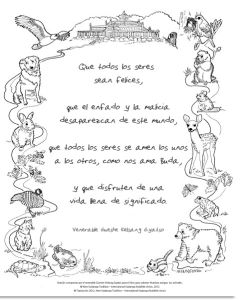 Que todos los seres
sean felices,
que el enfado y la malicia
desaparezcan de este mundo,
que todos los seres se amen los unos
a los otros, como nos ama Buda,
y que disfruten de una
vida llena de significado.
Venerable Gueshe Kelsang Gyatso